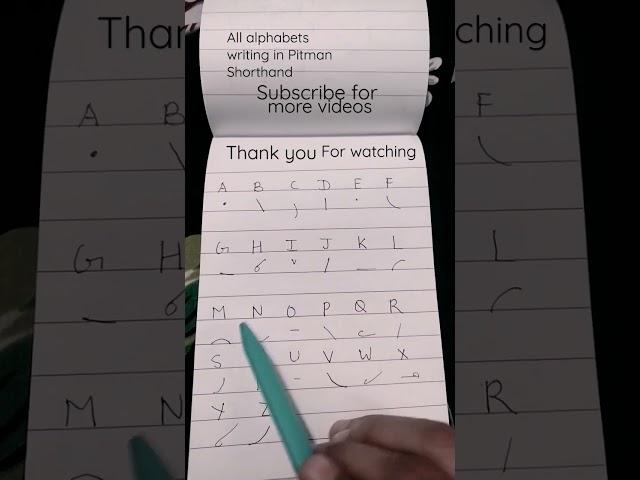 All alphabets
writing in Pitman
Shorthand
Subscribe for
more videos
Thank you For watching
A B C D E F
G H I J K L
M N O P Q R
S U V W X
Y Z